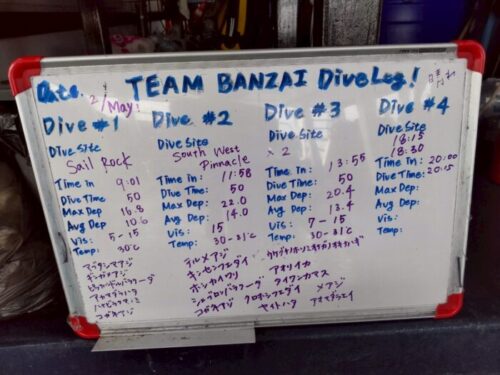 Date. 2/May. TEAM BANZAI DiveLog! 晴れ
Dive #1
Dive Site
Sail Rock
Time In 9:01
Dive Time 50
Max Dep 16.8
Avg Dep 10.6
Vis: 5-15
Temp: 30℃
ギンガメアジ
コガネアジ
Dive #2
Dive Site
South West
Pinnacle
Time In: 11:58
Dive Time: 50
Max Dep: 22.0
Avg Dep: 14.0
Vis: 15
Temp: 30-31℃
キンセンフエダイ
ホシカイワリ
コガネアジ
Dive #3
Dive Site
×2
Time In: 13:55
Dive Time: 50
Max Dep: 20.4
Avg Dep: 13.4
Vis: 7-15
Temp: 30-31℃
アオリイカ
タイワンカマス
クロホシフエダイ メアジ
ヤイトハタ アオマダラエイ
Dive #4
Dive Site
18:15
18:30
Time In: 20:00
Dive Time: 20:15
Max Dep:
Avg Dep:
Vis:
Temp: